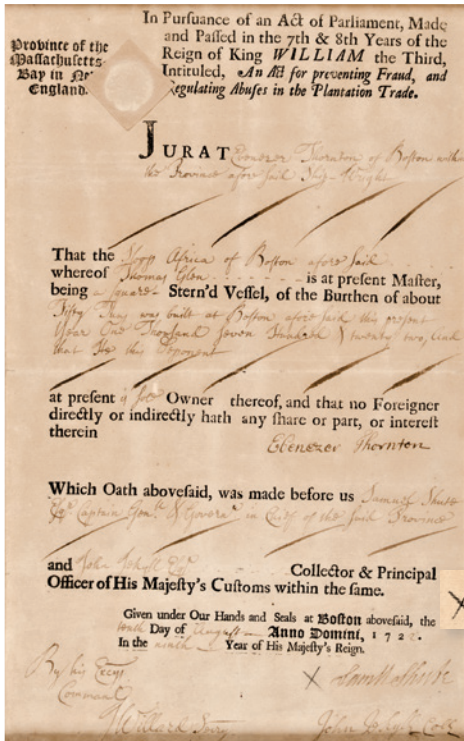 Province of the
Massachusetts-
Bay in New
England.
In Pursuance of an Act of Parliament, Made
and Passed in the 7th & 8th Years of the
Reign of King WILLIAM the Third,
Intituled, An Act for preventing Fraud, and
Regulating Abuses in the Plantation Trade.
JURAT Ebenezer Thornton of Boston within
the Province afore said Ship-Wright
That the Sloop Africa of Boston afore said
whereof Thomas Glen is at present Master,
being a square Stern'd Vessel, of the Burthen of about
Fifty Tuns was built at Boston afore said this present
Year One Thousand Seven Hundred & twenty two, And
that He this Deponent
at present is sole Owner thereof, and that no Foreigner
directly or indirectly hath any share or part, or interest
therein
Ebenezer Thornton
Which Oath abovesaid, was made before us Samuel Shute
Esqr. Captain Genll. & Governr. in Chief of the said Province
and John Jekyll Esqr. Collector & Principal
Officer of His Majesty's Customs within the same.
Given under Our Hands and Seals at Boston abovesaid, the
tenth Day of August Anno Domini, 1722.
In the ninth Year of His Majesty's Reign.
By his Excys
Command
X Samll Shute
J Willard Secry
John Jekyll Collr
X